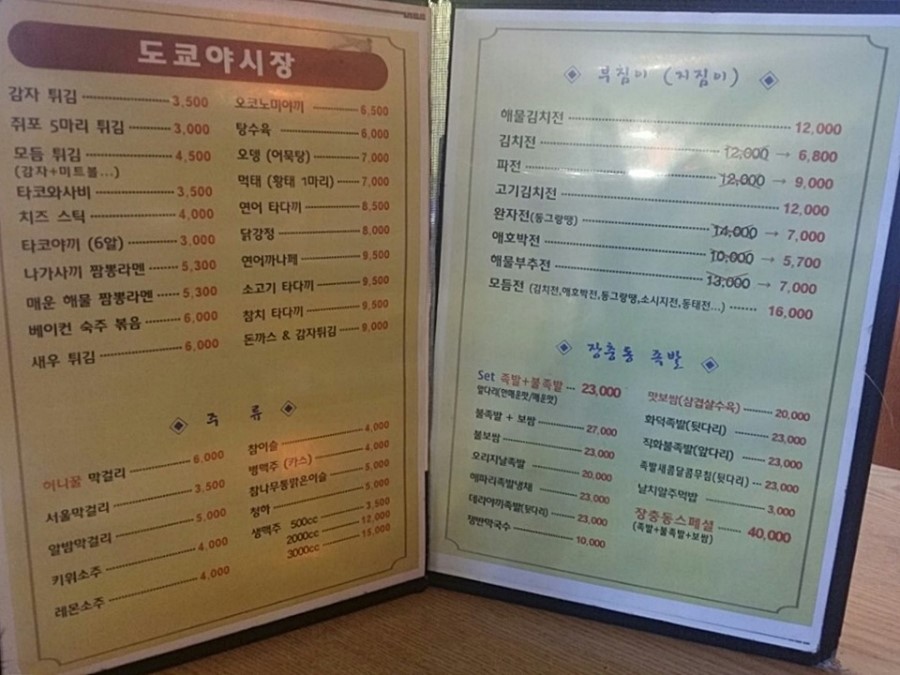 도쿄야시장
감자 튀김 3,500
쥐포 5마리 튀김 3,000
모듬 튀김 4,500
(감자+미트볼...)
타코와사비 3,500
치즈 스틱 4,000
타코야끼 (6알) 3,000
나가사끼 짬뽕라멘 5,300
매운 해물 짬뽕라멘 5,300
베이컨 숙주 볶음 6,000
새우 튀김 6,000
오코노미야끼 6,500
탕수육 6,000
오뎅 (어묵탕) 7,000
먹태 (황태 1마리) 7,000
연어 타다끼 8,500
닭강정 8,000
연어까나페 9,500
소고기 타다끼 9,500
참치 타다끼 9,500
돈까스 & 감자튀김 9,000
주 류
허니꿀 막걸리 6,000
서울막걸리 3,500
알밤막걸리 5,000
키위소주 4,000
레몬소주 4,000
참이슬 4,000
병맥주 (카스) 4,000
참나무통맑은이슬 5,000
청하 5,000
생맥주 500cc 3,500
2000cc 12,000
3000cc 15,000
부침이 (지짐이)
해물김치전 12,000
김치전 12,000 → 6,800
파전 12,000 → 9,000
고기김치전 12,000
완자전(동그랑땡) 14,000 → 7,000
애호박전 10,000 → 5,700
해물부추전 13,000 → 7,000
모듬전 (김치전,애호박전,동그랑땡,소시지전,동태전...) 16,000
장충동 족발
Set 족발+불족발 23,000
앞다리(안매운맛/매운맛)
불족발 + 보쌈 27,000
불보쌈 23,000
오리지날족발 20,000
해파리족발냉채 23,000
데리야끼족발(뒷다리) 23,000
쟁반막국수 10,000
맛보쌈(삼겹살수육) 20,000
화덕족발(뒷다리) 23,000
직화불족발(앞다리) 23,000
족발새콤달콤무침(뒷다리) 23,000
날치알주먹밥 3,000
장충동스페셜 40,000
(족발+불족발+보쌈)